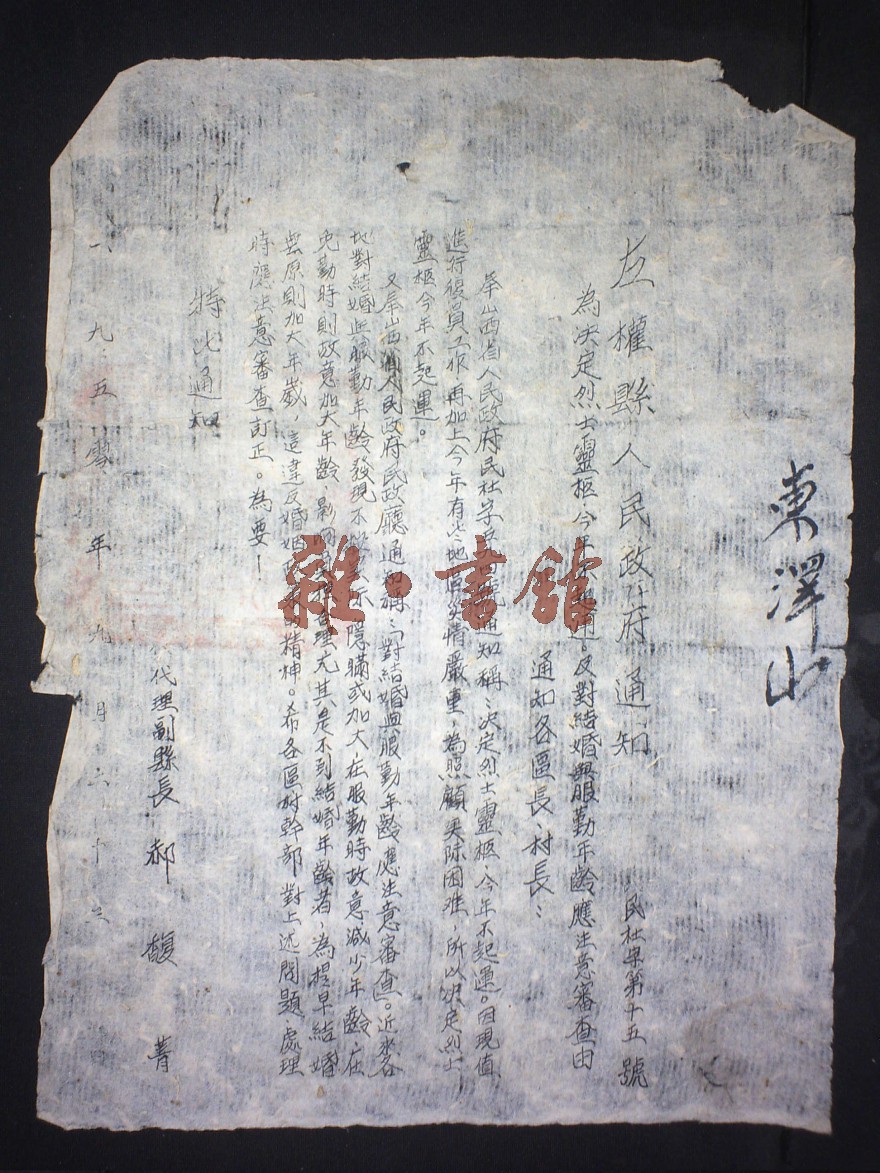 東澤山
左權縣人民政府通知
民社字第十五號
為決定烈士靈柩今年不起運。及對結婚與服勤年齡應注意審查由
通知各區長、村長:
奉山西省人民政府民社字通知稱:決定烈士靈柩、今年不起運。因現值
進行復員工作再加上今年有些地區災情嚴重,為照顧實际困难,所以决定烈士
靈柩今年不起運。
又奉山西省人民政府民政廳通知稱:「對結婚與服勤年齡應注意審查」。近來各
地對結婚與服勤年齡發現不隱瞞或加大,在服勤時故意減少年齡,在
免勤時則故意加大年齡,影响理尤其是不到結婚年齡者,為提早結婚
無原則加大年歲,這違反婚姻精神。希各區村幹部對上述問題處理
時應注意審查訂正。為要!
特此通知
代理副縣長 郝馥菁
一九五零年九月二十三日
雜·書館